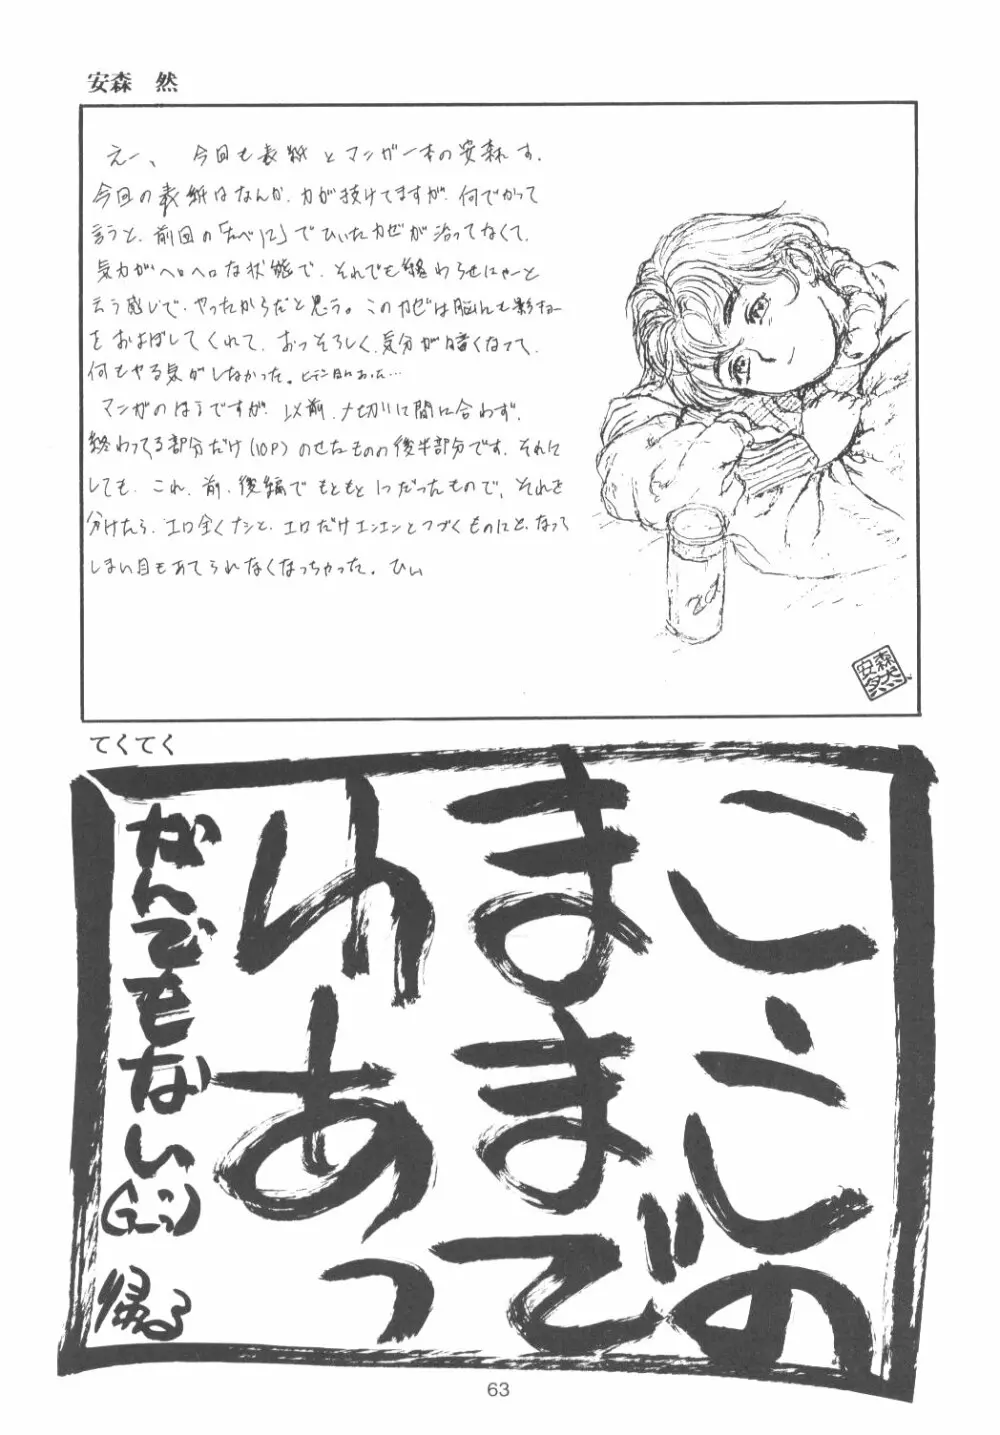 安森 然
えー、今回も表紙とマンガ一本の安森れす。
今回の表紙はなんか、力が抜けてますが、何でかって
言うと、前回の「たべ12」でひいたカゼが治ってなくて、
気力がヘロヘロな状態で、それでも終わらせにゃーと
云う感じで、やったからだと思う。このカゼは脳にも影キョー
をおよぼしてくれて、おっそろしく、気分が暗くなって、
何もやる気がしなかった。
マンガのほうですが、以前、〆切りに間に合わず、
終わってる部分だけ(10P)のせたものの後半部分です。それに
しても、これ、前、後編でもともと1つだったもので、それを
分けたら、エロ全くナシと、エロだけエンエンとつづくものにと、なって
しまい目もあてられなくなっちゃった。ひぃ
安森然
てくてく
こころの
ままで
れあっ
なんでもない
帰る
63